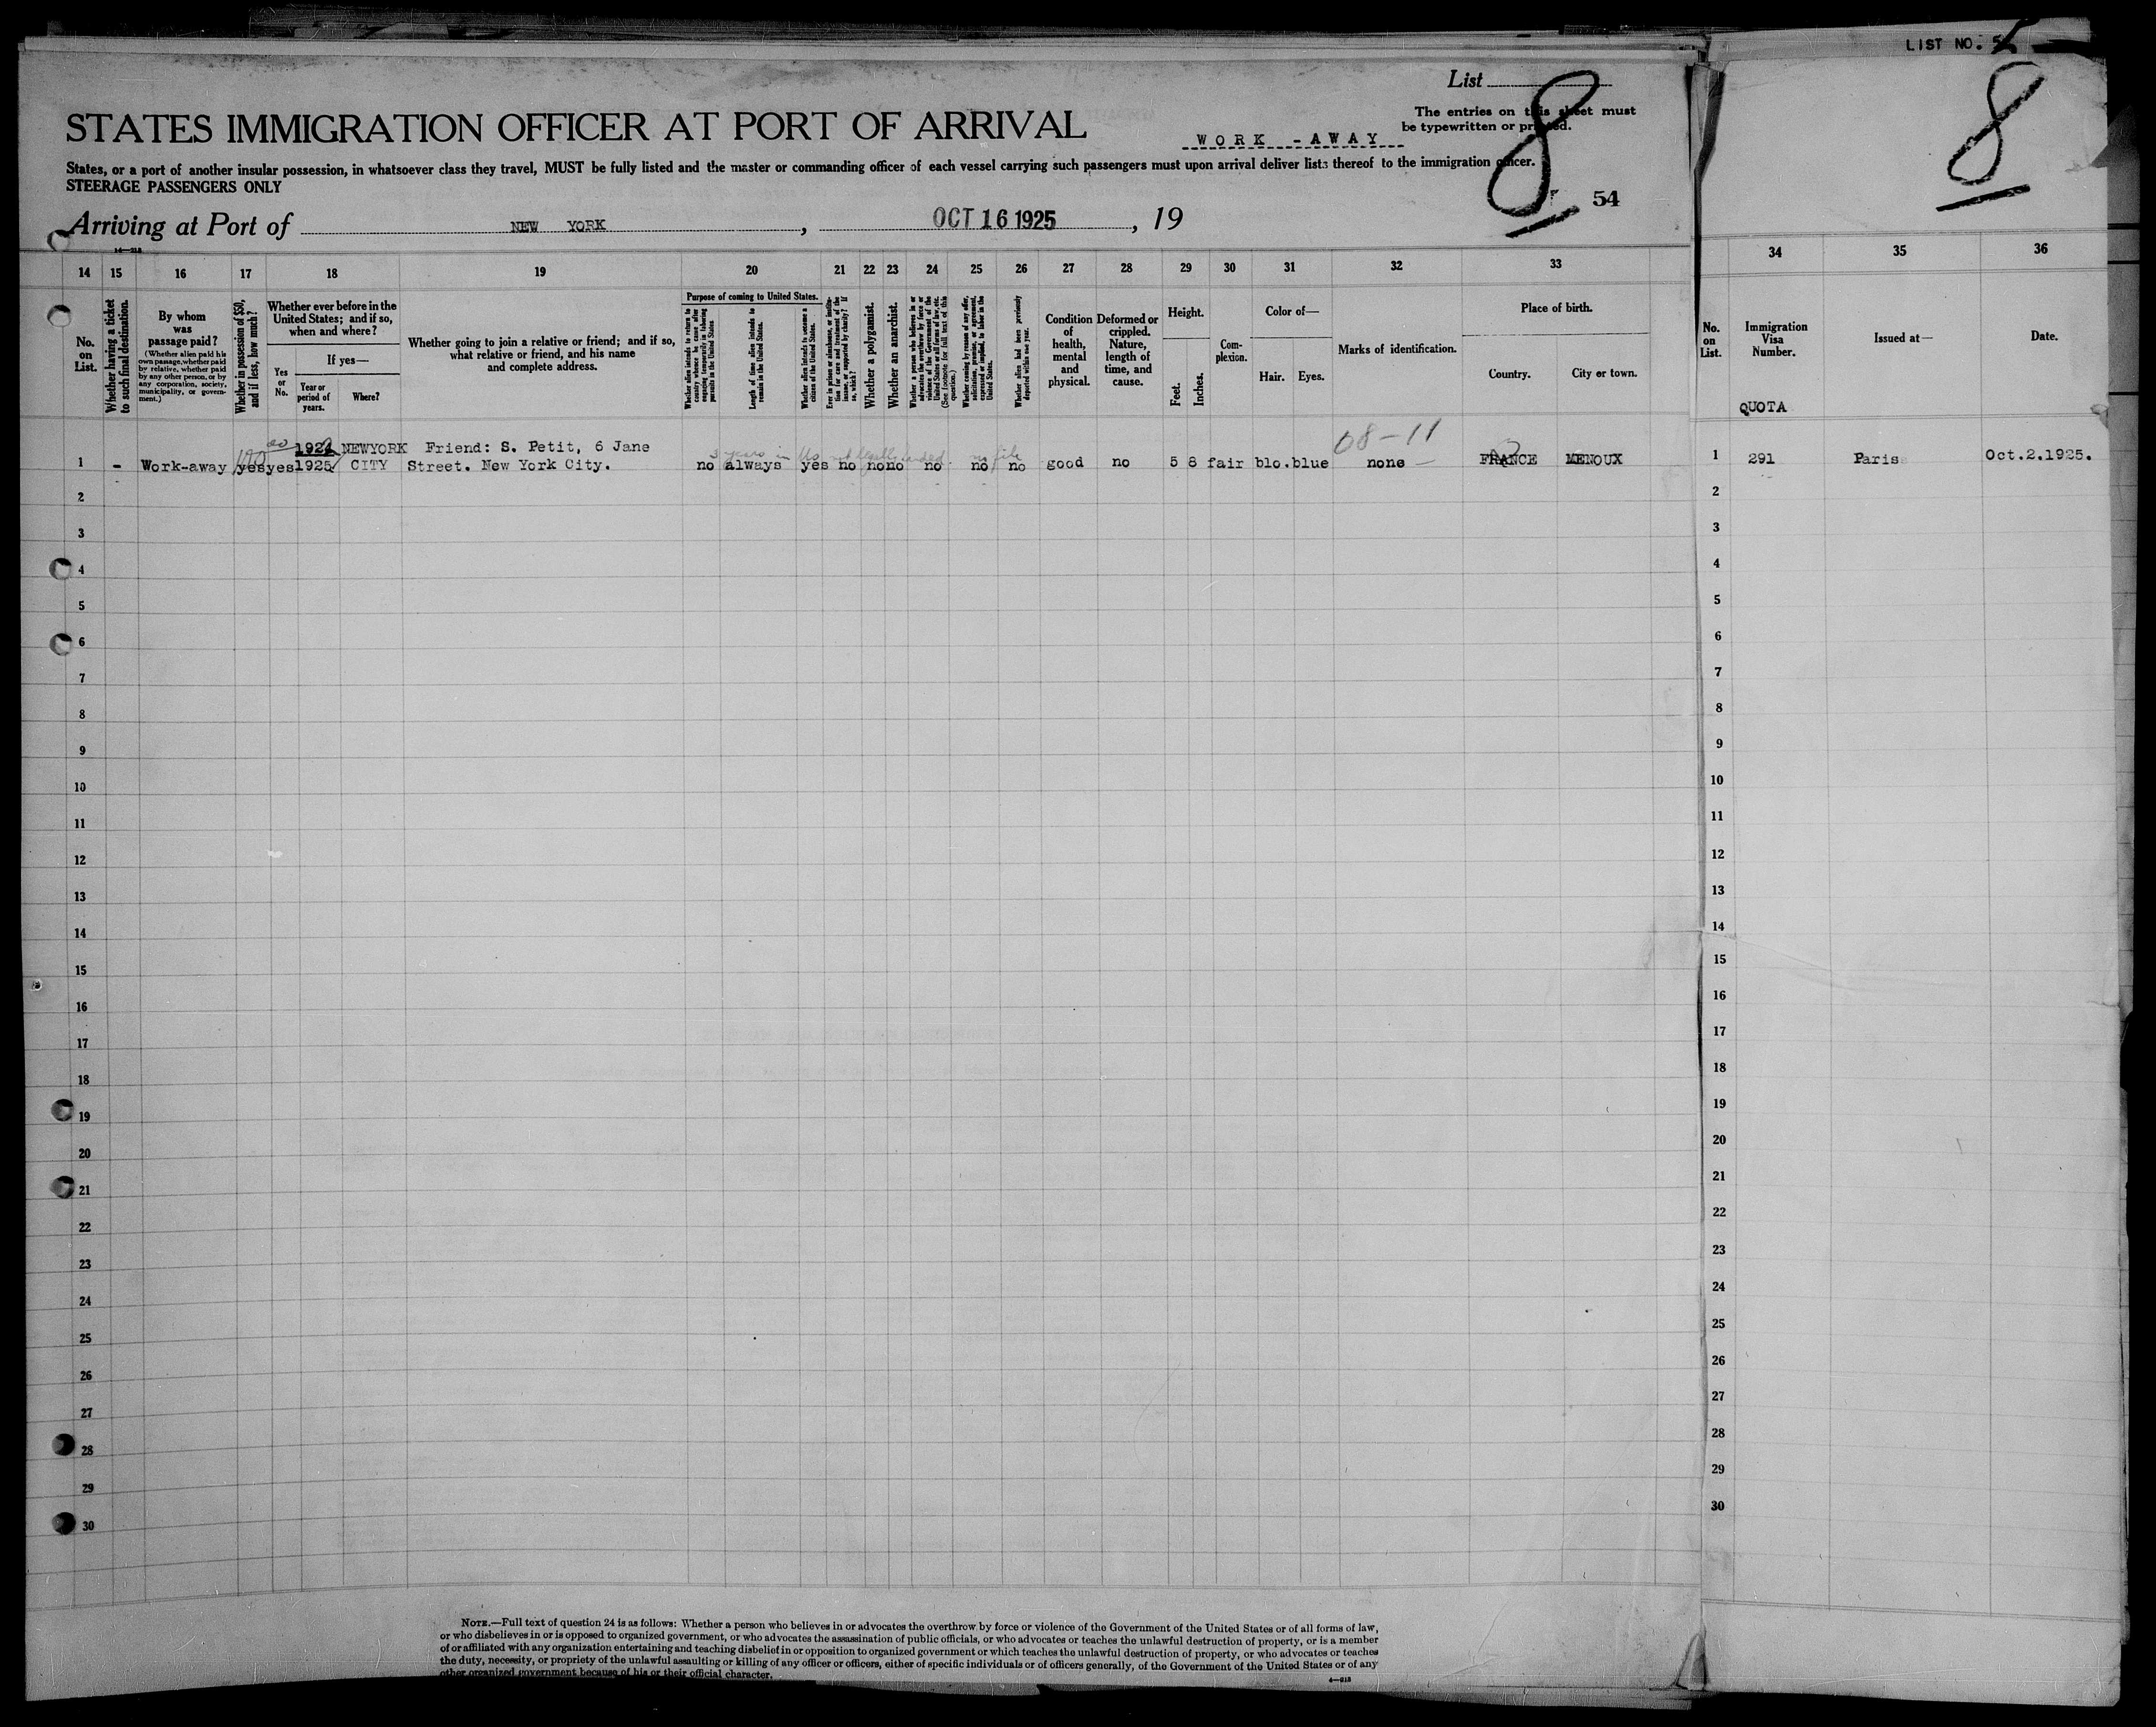 LIST NO. 5
8
List
8
The entries on this sheet must
be typewritten or printed.
STATES IMMIGRATION OFFICER AT PORT OF ARRIVAL
WORK -AWAY
States, or a port of another insular possession, in whatsoever class they travel, MUST be fully listed and the master or commanding officer of each vessel carrying such passengers must upon arrival deliver lists thereof to the immigration officer.
STEERAGE PASSENGERS ONLY
54
Arriving at Port of NEW YORK, OCT 16 1925, 19
14 15 16 17 18 19 20 21 22 23 24 25 26 27 28 29 30 31 32 33 34 35 36
No. on List.
Whether having a ticket to such final destination.
By whom was passage paid?
(Whether alien paid his own passage, whether paid by relative, whether paid by any other person, or by any corporation, society, municipality, or government.)
Whether in possession of $50, and if less, how much?
Whether ever before in the United States; and if so, when and where?
Yes or No.
If yes—
Year or period of years.
Where?
Whether going to join a relative or friend; and if so, what relative or friend, and his name and complete address.
Purpose of coming to United States.
Whether alien intends to return to country whence he came after engaging temporarily in laboring pursuits in the United States
Length of time alien intends to remain in the United States.
Whether alien intends to become a citizen of the United States.
Ever in prison or almshouse, or institution for care and treatment of the insane, or supported by charity? If so, which?
Whether a polygamist.
Whether an anarchist.
Whether a person who believes in or advocates the overthrow by force or violence of the Government of the United States or all forms of law, etc. (See footnote for full text of this question.)
Whether coming by reason of any offer, solicitation, promise, or agreement, expressed or implied, to labor in the United States.
Whether alien had been previously deported within one year.
Condition of health, mental and physical.
Deformed or crippled. Nature, length of time, and cause.
Height.
Feet.
Inches.
Complexion.
Color of—
Hair.
Eyes.
Marks of identification.
Place of birth.
Country.
City or town.
No. on List.
Immigration Visa Number.
QUOTA
Issued at—
Date.
08-11
3 years in US not legally landed no file
1924 NEWYORK Friend: S. Petit, 6 Jane
1 - Work-away 100 yes yes 1925 CITY Street. New York City. no always yes no no no no no no good no 5 8 fair blo. blue none FRANCE MENOUX 1 291 Paris Oct.2.1925.
2 2
3 3
4 4
5 5
6 6
7 7
8 8
9 9
10 10
11 11
12 12
13 13
14 14
15 15
16 16
17 17
18 18
19 19
20 20
21 21
22 22
23 23
24 24
25 25
26 26
27 27
28 28
29 29
30 30
NOTE.—Full text of question 24 is as follows: Whether a person who believes in or advocates the overthrow by force or violence of the Government of the United States or of all forms of law,
or who disbelieves in or is opposed to organized government, or who advocates the assassination of public officials, or who advocates or teaches the unlawful destruction of property, or is a member
of or affiliated with any organization entertaining and teaching disbelief in or opposition to organized government or which teaches the unlawful destruction of property, or who advocates or teaches
the duty, necessity, or propriety of the unlawful assaulting or killing of any officer or officers, either of specific individuals or of officers generally, of the Government of the United States or of any
other organized government because of his or their official character.